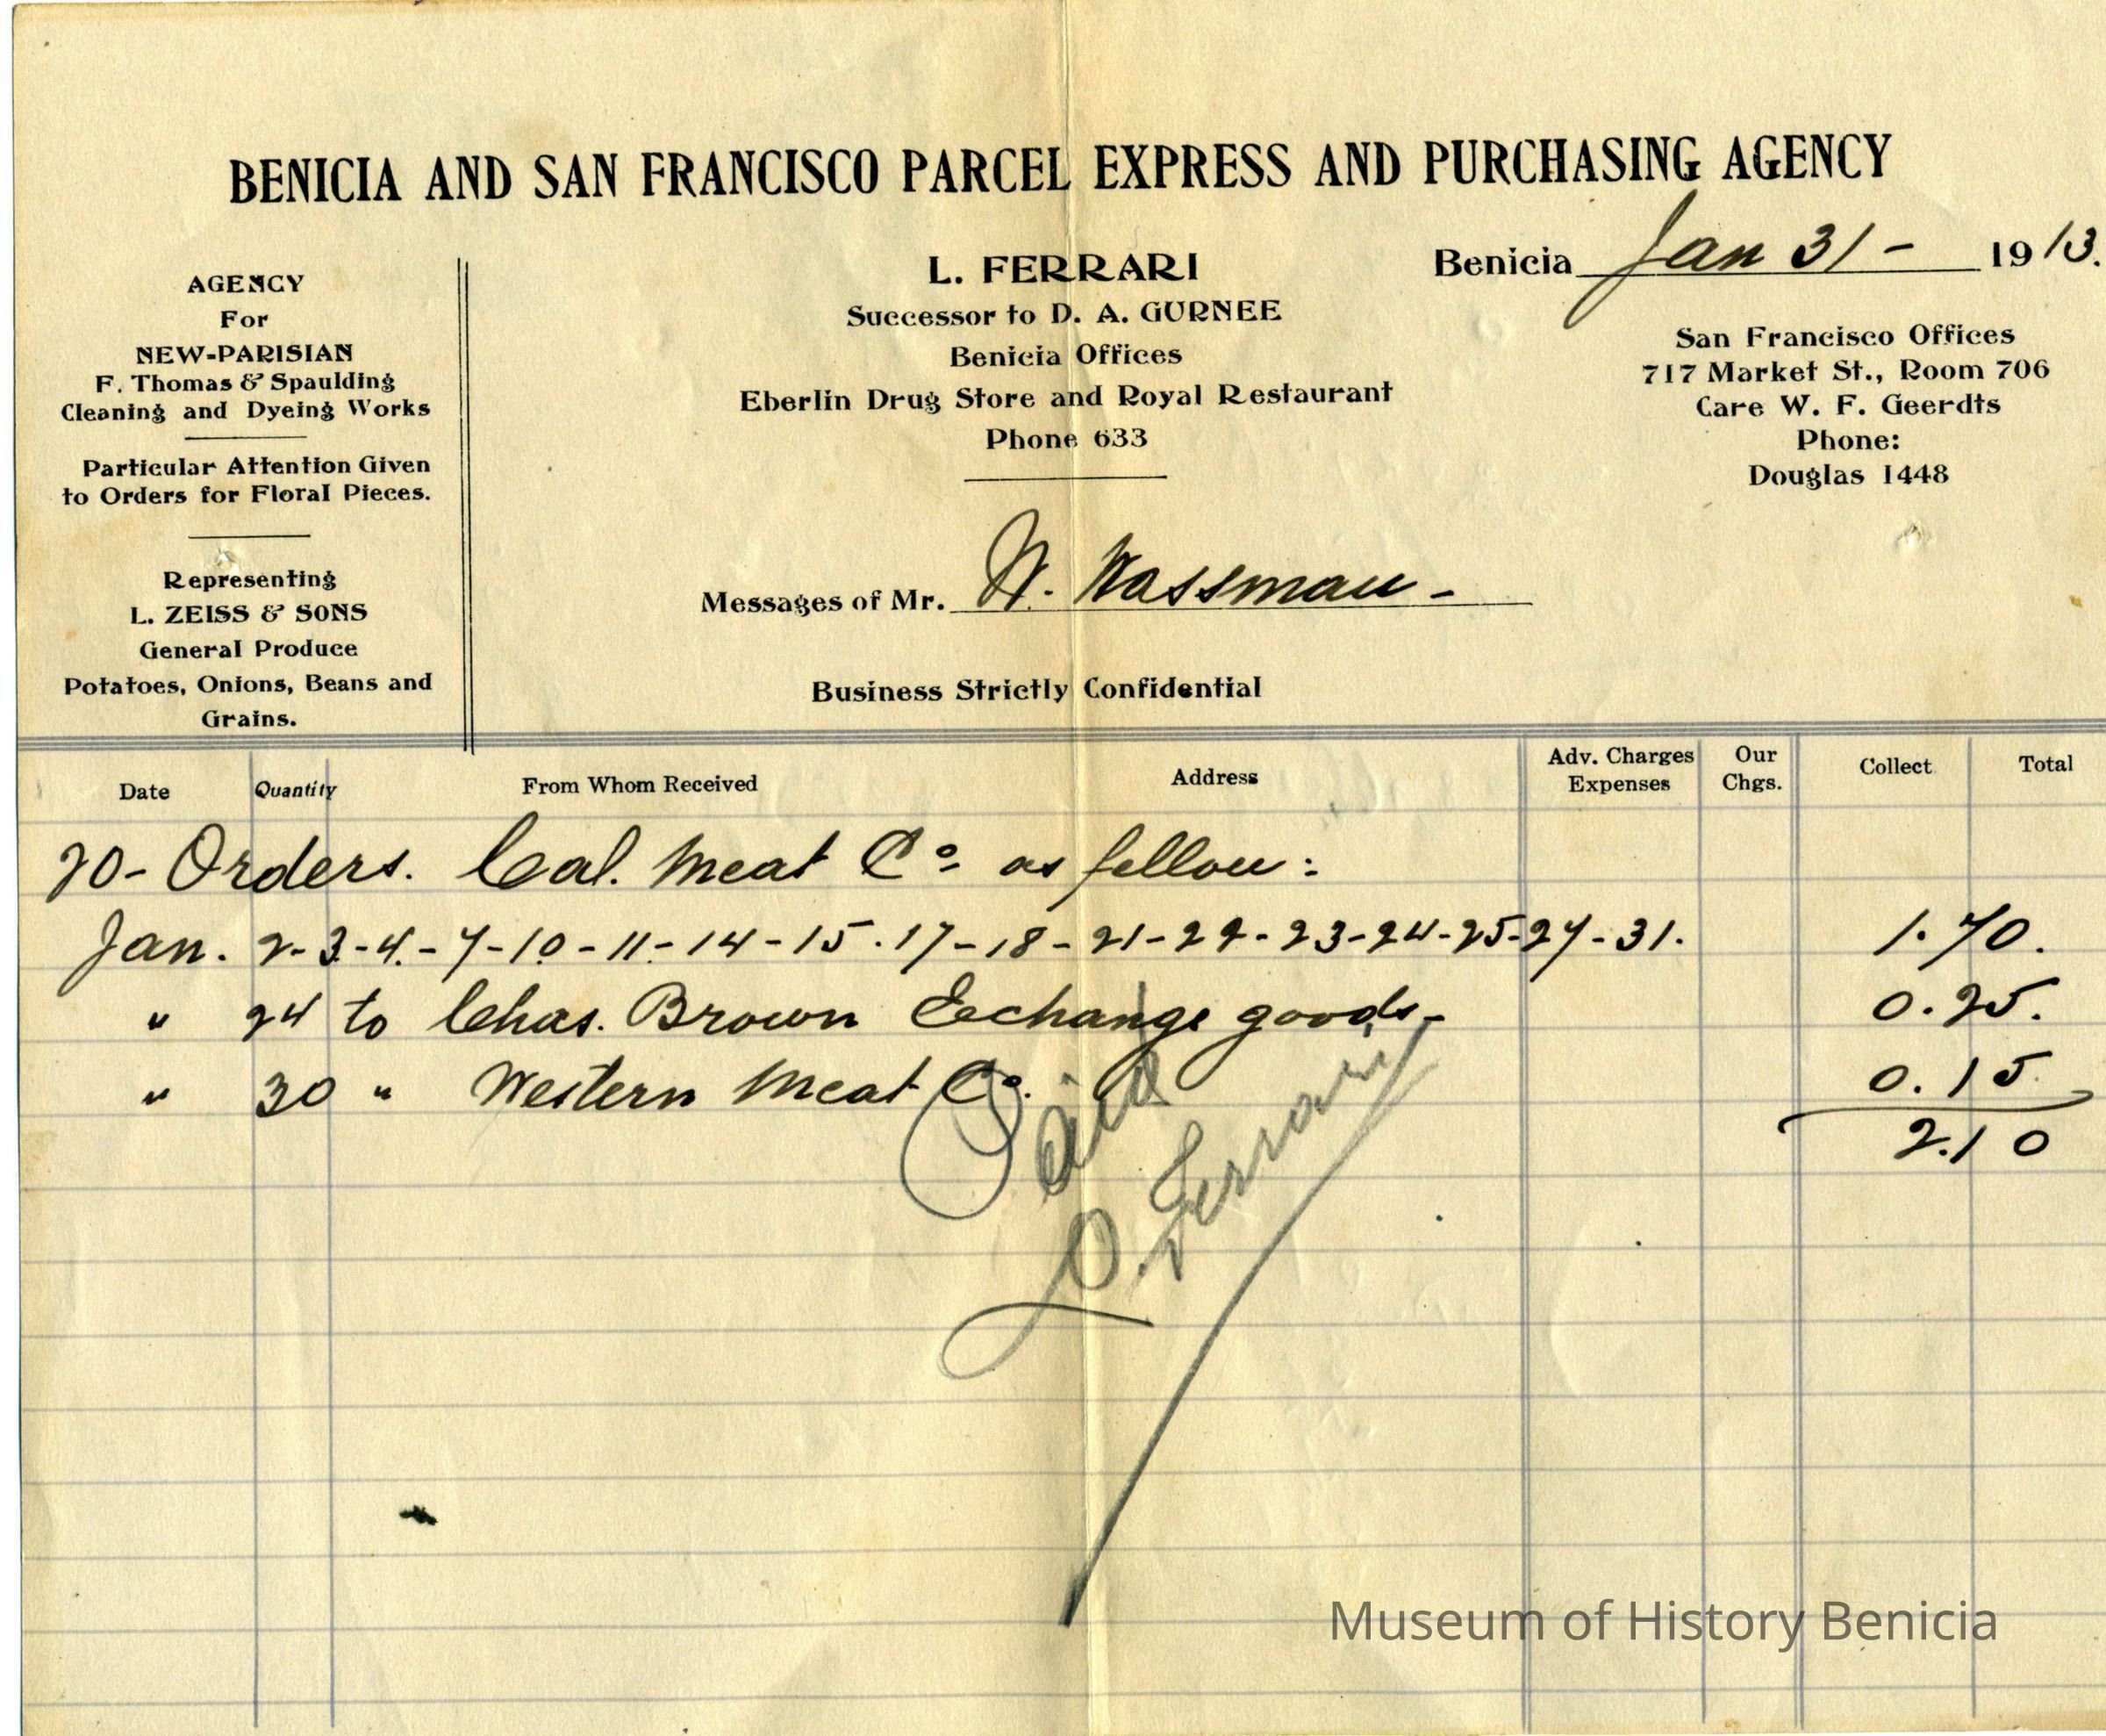 BENICIA AND SAN FRANCISCO PARCEL EXPRESS AND PURCHASING AGENCY
Benicia Jan 31 - 1913.
AGENCY
For
NEW-PARISIAN
F. Thomas & Spaulding
Cleaning and Dyeing Works
Particular Attention Given
to Orders for Floral Pieces.
Representing
L. ZEISS & SONS
General Produce
Potatoes, Onions, Beans and
Grains.
L. FERRARI
Successor to D. A. GURNEE
Benicia Offices
Eberlin Drug Store and Royal Restaurant
Phone 633
San Francisco Offices
717 Market St., Room 706
Care W. F. Geerdts
Phone:
Douglas 1448
Messages of Mr. Wassman -
Business Strictly Confidential
Date Quantity From Whom Received Address Adv. Charges Expenses Our Chgs. Collect Total
20- Orders. Cal. Meat Co. as follow:
Jan. 2-3-4-7-10-11-14-15-17-18-21-22-23-24-25-27-31. 1.70.
" 24 to Chas. Brown Exchange goods- 0.25.
" 30 " Western Meat Co. 0.15
2.10
Paid
Ferrari
Museum of History Benicia